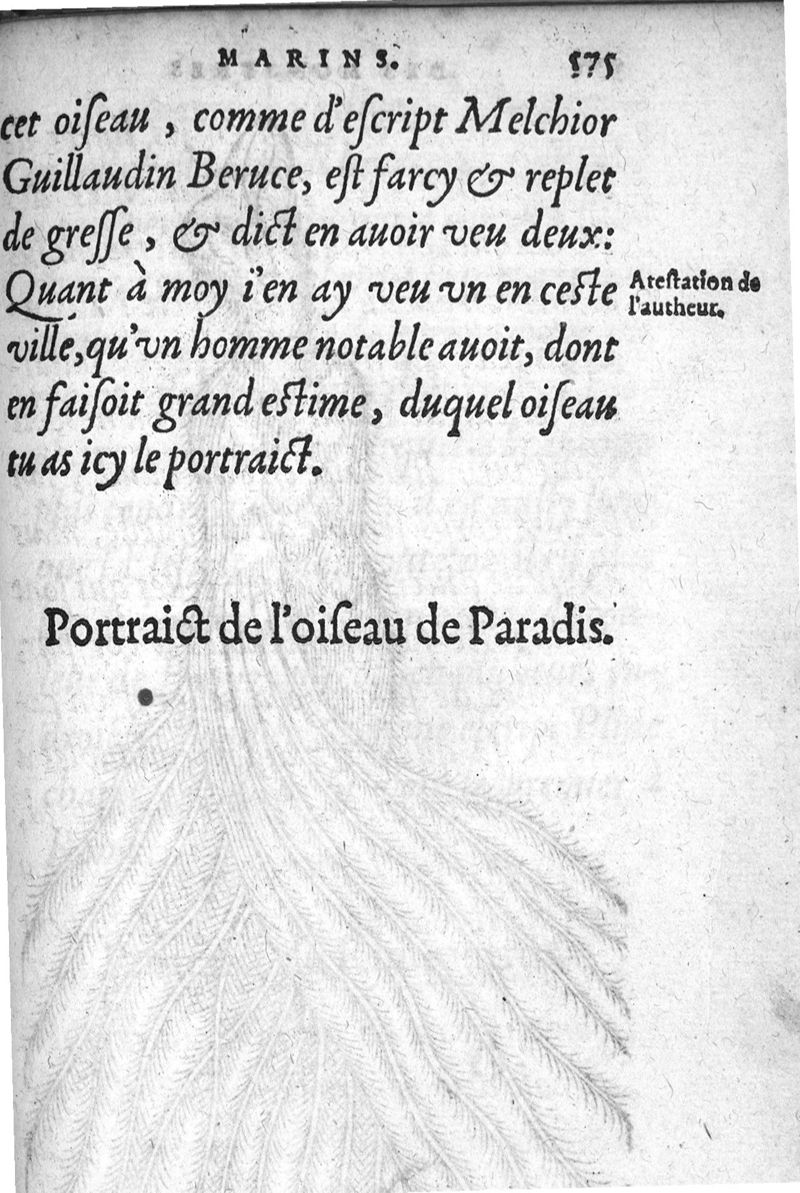 MARINS. 575
cet oiſeau , comme d'eſcript Melchior
Guillaudin Beruce, eſt farcy & replet
de greſſe , & dict en auoir veu deux:
Quant à moy i'en ay veu vn en ceſte
Ateſtation de
l'autheur.
ville,qu'vn homme notable auoit, dont
en faiſoit grand eſtime, duquel oiſeau
tu as icy le portraict.
Portraict de l'oiſeau de Paradis.